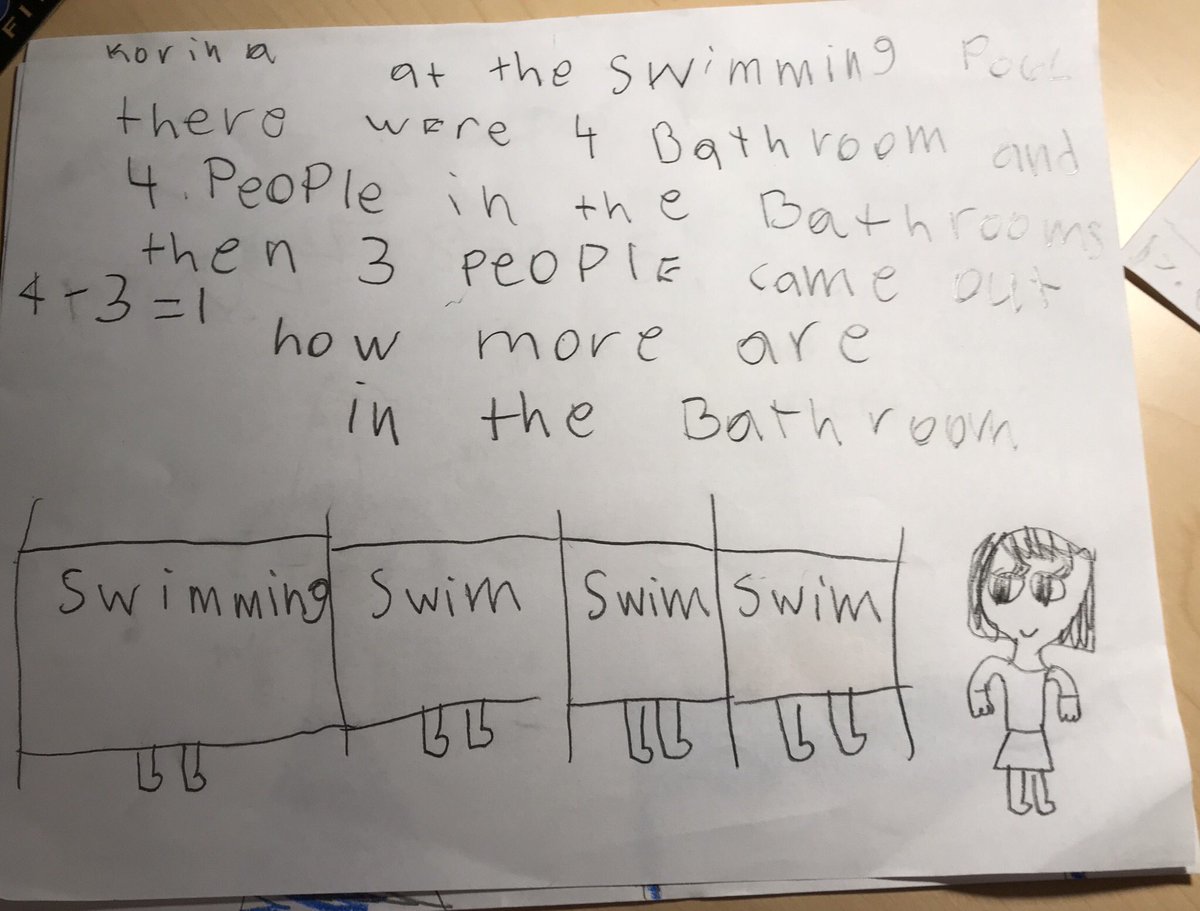 Korina at the swimming Pool
there were 4 Bathroom and
4 People in the Bathrooms
then 3 people came out
4-3=1
how more are
in the Bathroom
Swimming Swim Swim Swim